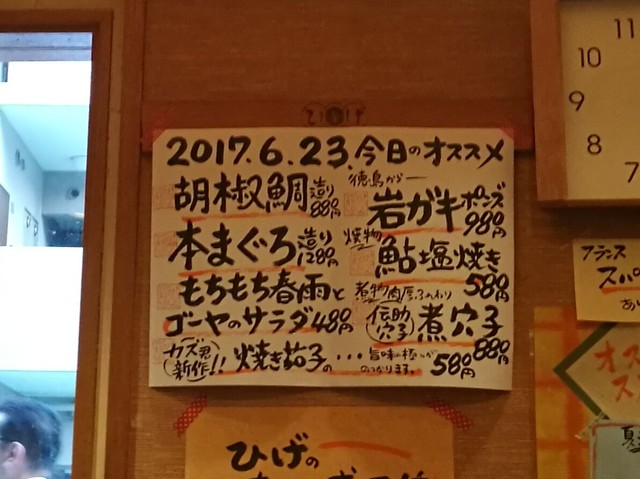 2017.6.23.今日のオススメ
胡椒鯛造り880円
本まぐろ造り1280円
もちもち春雨と
ゴーヤのサラダ480円
カズ君新作!!焼き茄子の…
580円
徳島から
岩ガキポンズ980円
焼物
鮎塩焼き580円
煮物
伝助穴子
煮穴子880円
ひげの
フランス
スパ
オス
ス
11
10
9
8
7